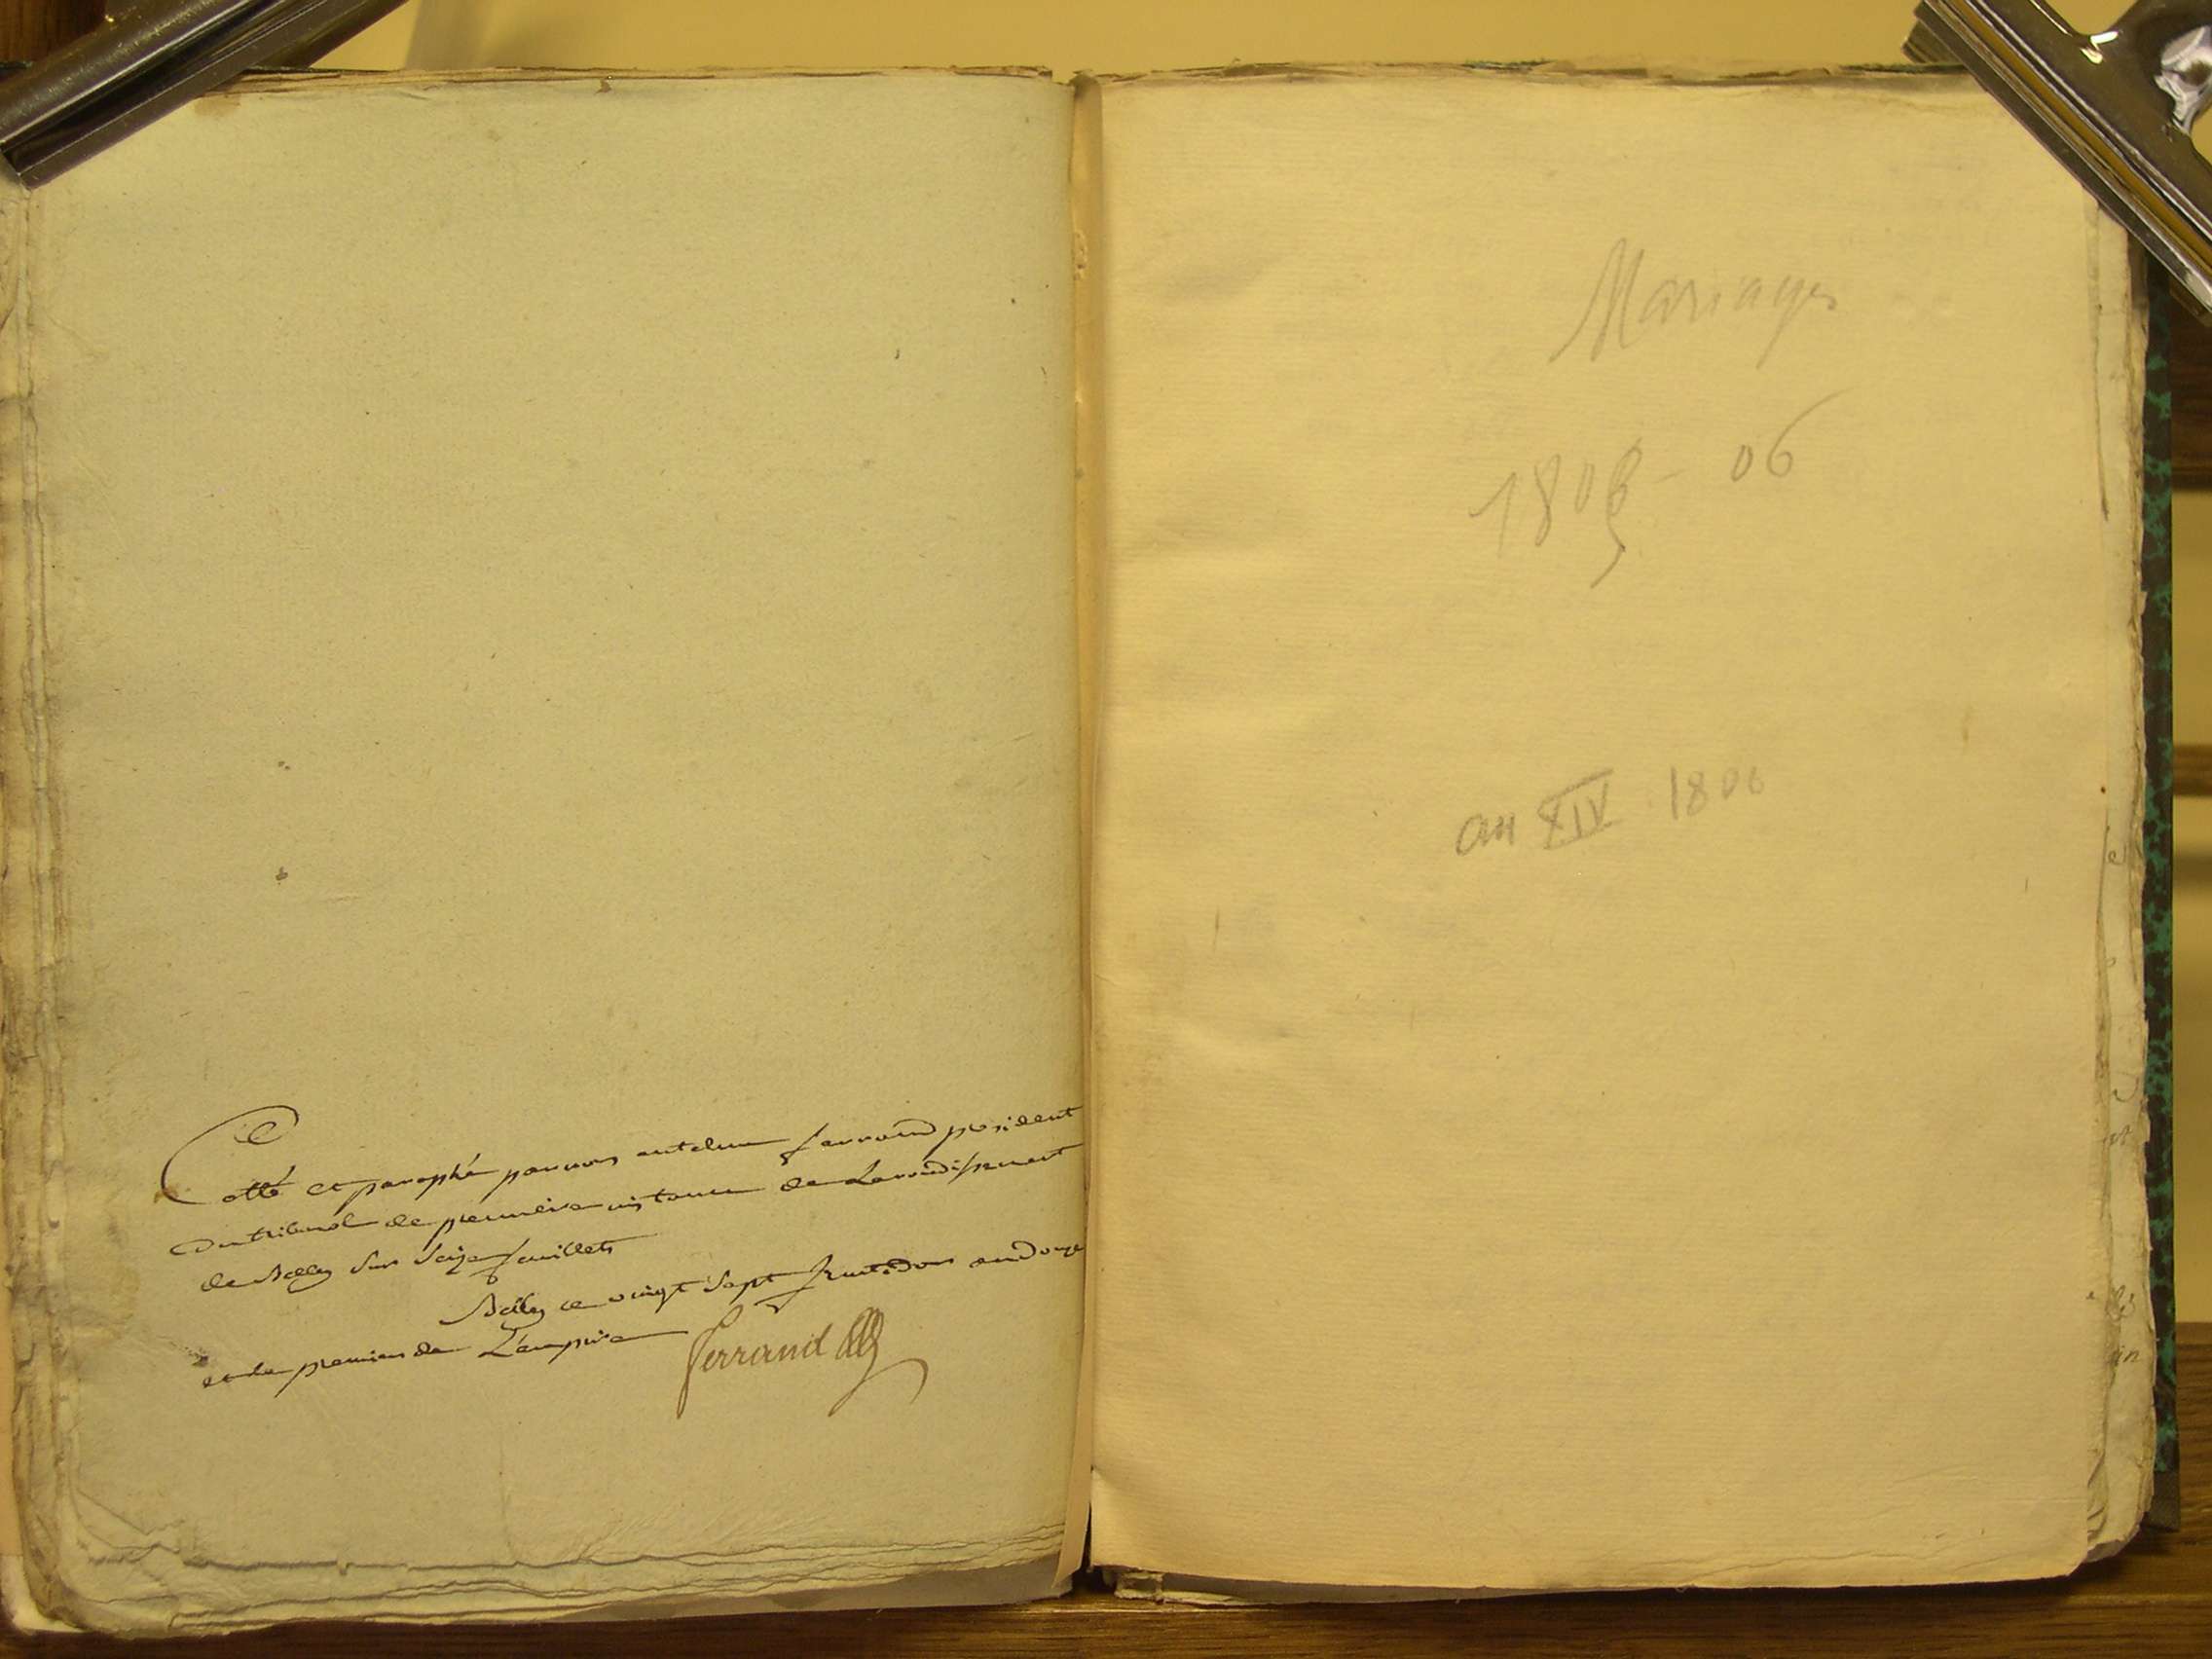 Cotté et paraphé par nous antelme ferrand president
Du tribunal de premiere instance de Larondissement
de Belley sur seize feuillets
Belley ce vingt sept fructidor an douze
et le premier de L'empire
ferrand
Mariages
1805 - 06
an XIV 1806